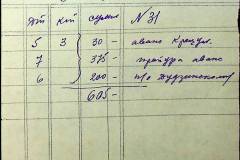 Дт Кт сумма №31
5 3 30 – аванс
7 375 – аванс
6 200 – п/о
605 –